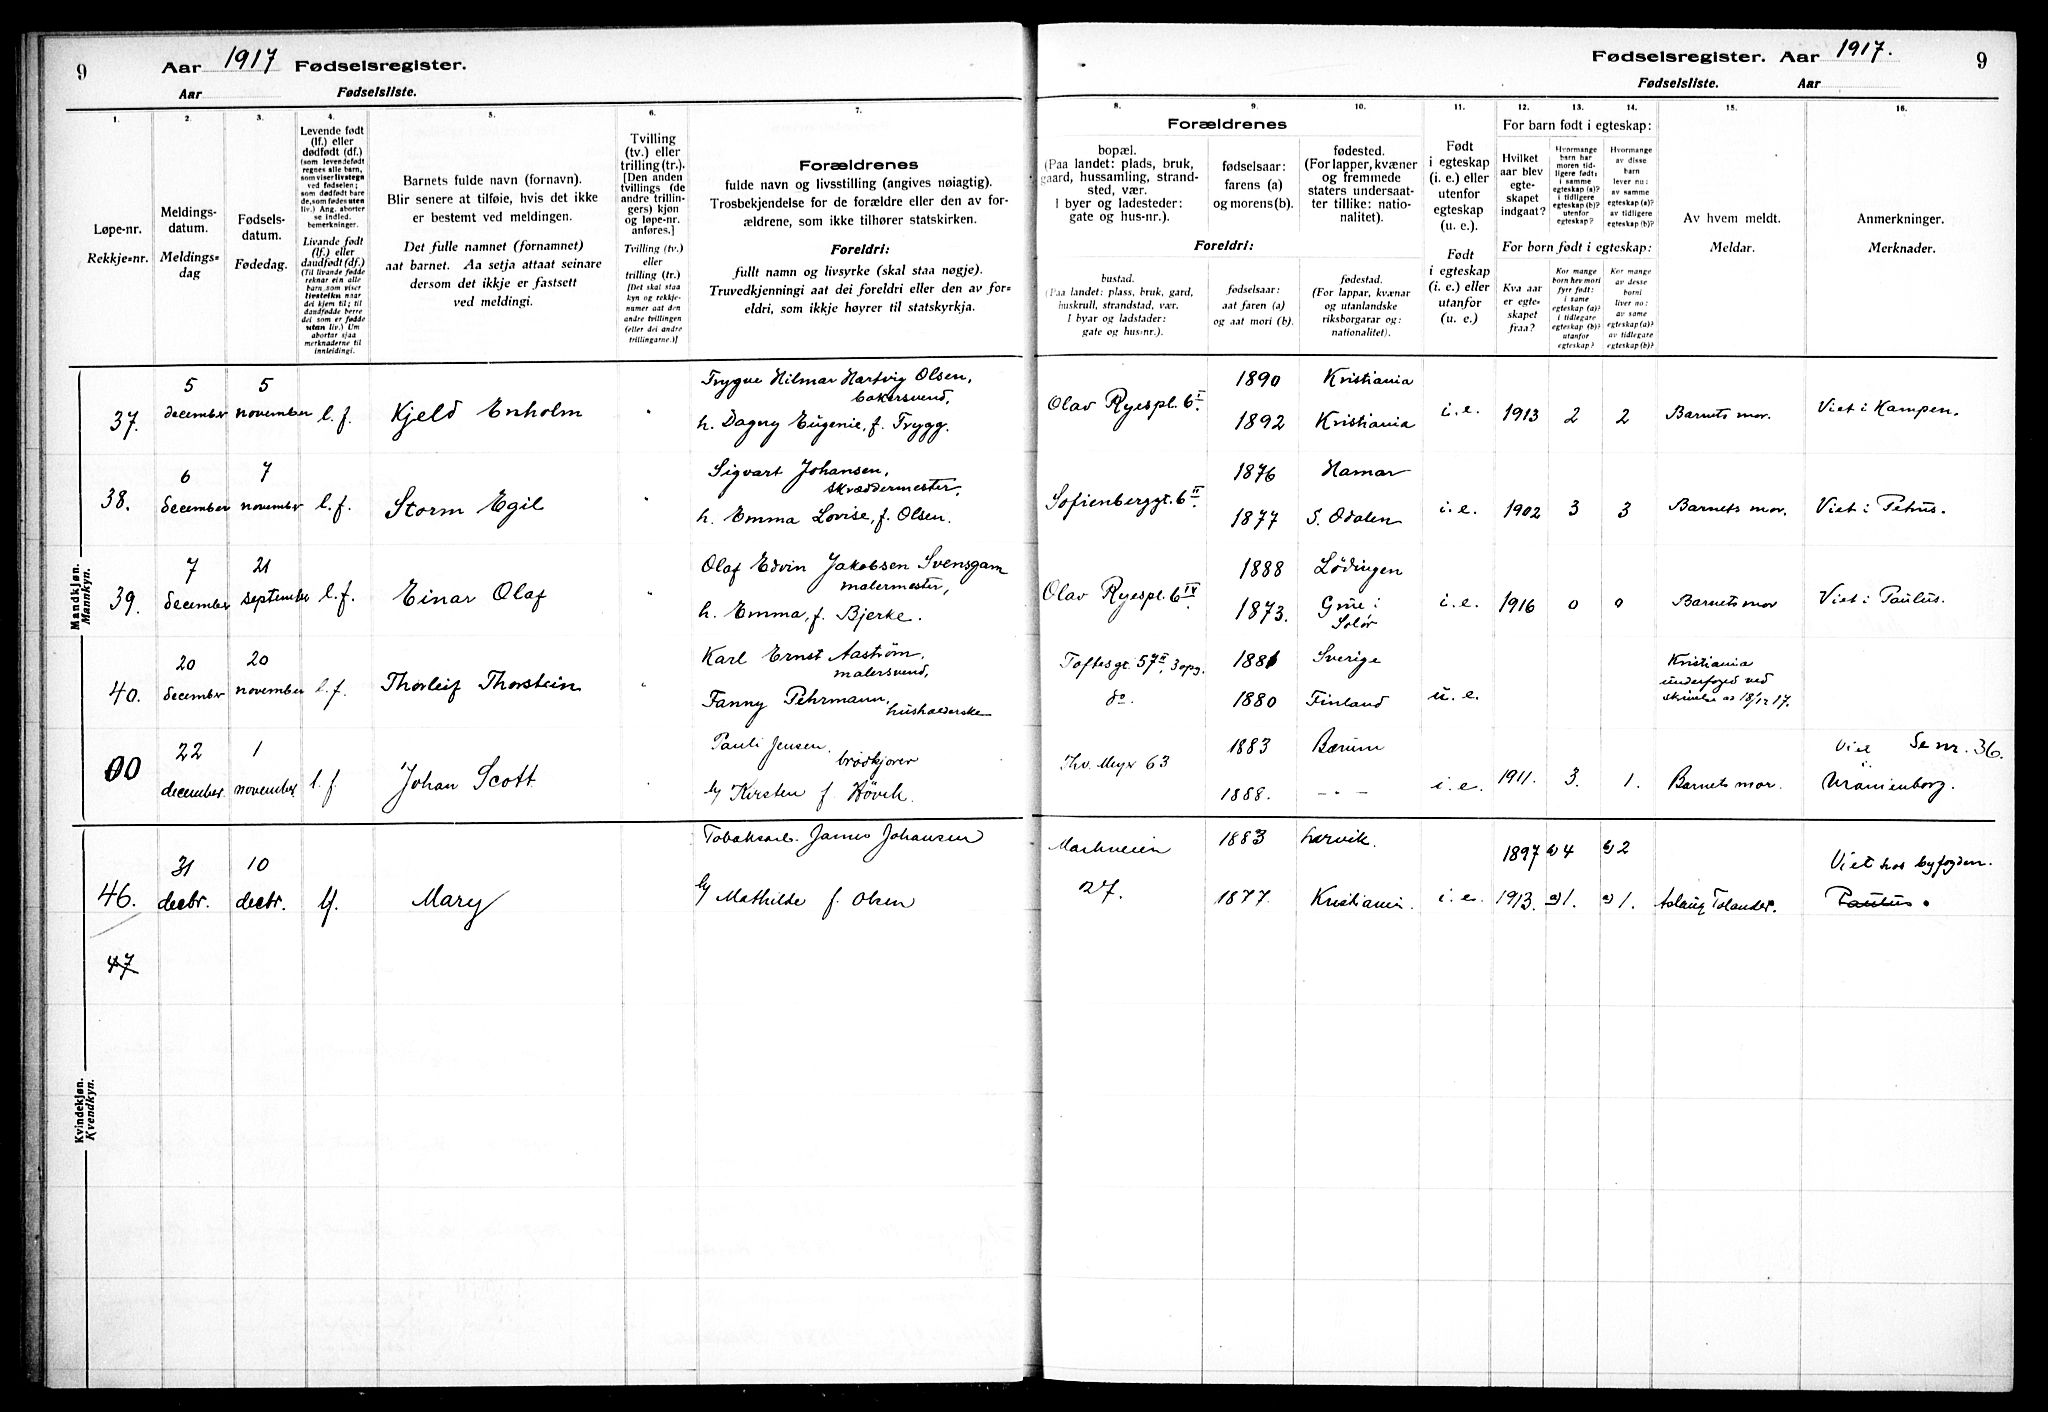 9
Aar 1917 Fødselsregister.
Aar
Fødselsliste.
1.
Løpe-nr.
Rekkje=nr.
2.
Meldings-
datum.
Meldings=
dag
3.
Fødsels-
datum.
Fødedag.
4.
Levende født
(lf.) eller
dødfødt (df.)
(som levendefødt
regnes alle barn,
som viser livstegn
ved fødselen;
som dødfødt bare
de, som fødes uten
liv.) Ang. aborter
se indled.
bemerkninger.
Livande født
(lf.) eller
daudfødt (df.)
(Til livande fødde
reknar ein alle
barn, som viser
livsteikn naar
dei kjem til; til
daudfødde berre
dei som er fødde
utan liv.) Um
abortar sjaa
merknaderne til
innleidingi.
5.
Barnets fulde navn (fornavn).
Blir senere at tilføie, hvis det ikke
er bestemt ved meldingen.
Det fulle namnet (fornamnet)
aat barnet. Aa setja attaat seinare
dersom det ikkje er fastsett
ved meldingi.
6.
Tvilling
(tv.) eller
trilling (tr.).
[Den anden
tvillings (de
andre trillin-
gers) kjøn
og løpe-nr.
anføres.]
Tvilling (tv.)
eller
trilling (tr.)
[Det skal staa
kyn og rekkje-
numer aat den
andre tvillingen
(eller dei andre
trillingarne.)]
7.
Forældrenes
fulde navn og livsstilling (angives nøiagtig).
Trosbekjendelse for de forældre eller den av for-
ældrene, som ikke tilhører statskirken.
Foreldri:
fullt namn og livsyrke (skal staa nøgje).
Truvedkjenningi aat dei foreldri eller den av for=
eldri, som ikkje høyrer til statskyrkja.
Mandkjøn.
Mannkyn.
37.
5
december
5
november
l. f.
Kjeld Enholm
"
Trygve Hilmar Hartvig Olsen,
bakersvend,
h. Dagny Eugenie, f. Trygg.
38.
6
december
7
november
l. f.
Storm Egil
"
Sigvart Johansen,
skræddermester,
h. Emma Lovise, f. Olsen.
39.
7
december
21
september
l. f.
Einar Olaf
"
Olaf Edvin Jakobsen Svensgam
malermester,
h. Emma, f. Bjerke.
40.
20
december
20
november
l. f.
Thorleif Thorstein
"
Karl Ernst Aastrøm,
malersvend,
Fanny Pehrmann,
husholderske
00
22
december.
1
november
l. f
Johan Scott
Pauli Jensen.
brødkjører
Kirsten f. Høvik.
Kvindekjøn.
Kvendkyn.
46.
31
decbr.
10
decbr.
lf.
Mary
Tobaksarb. James Johansen
Mathilde f. Olsen
47
Fødselsregister. Aar 1917.
9
Fødselsliste.
Aar
Forældrenes
8.
bopæl.
(Paa landet: plads, bruk,
gaard, hussamling, strand-
sted, vær.
I byer og ladesteder:
gate og hus-nr.).
9.
fødselsaar:
farens (a)
og morens(b).
10.
fødested.
(For lapper, kvæner
og fremmede
staters undersaat-
ter tillike: natio-
nalitet).
Foreldri:
bustad.
(Paa landet: plass, bruk, gard,
huskrull, strandstad, vær.
I byar og ladstader:
gate og hus-nr.).
fødselsaar:
aat faren (a)
og aat mori (b).
fødestad.
(For lappar, kvænar
og utanlandske
riksborgarar og:
nationalitet).
11.
Født
i egteskap
(i. e.) eller
utenfor
egteskap
(u. e.).
Født
i egteskap
(i. e.) eller
utanfor
(u. e.)
For barn født i egteskap:
12.
Hvilket
aar blev
egte-
skapet
indgaat?
13.
Hvormange
barn har
moren tid-
ligere født:
i samme
egteskap (a)?
i tidligere
egteskap (b)?
utenfor
egteskap?
14.
Hvormange
av disse
barn
lever nu:
av samme
egteskap (a)?
av tidligere
egteskap (b)?
For born født i egteskap:
Kva aar
er egte-
skapet
fraa?
Kor mange
born hev mori
fyrr født:
i same
egteskap (a)?
i tidlegare
egteskap (b)?
utanfor
egteskap?
Kor mange
av desse
borni
liver no:
av same
egteskap (a)?
av tidlegare
egteskap (b)?
15.
Av hvem meldt.
Meldar.
16.
Anmerkninger.
Merknader.
Olav Ryespl. 6 I.
1890
1892
Kristiania
Kristiania
i. e.
1913
2
2
Barnets mor.
Viet i Kampen.
Sofienberggt. 6 II.
1876
1877
Hamar
S. Odalen
i. e.
1902
3
3
Barnets mor.
Viet i Petrus.
Olav Ryespl. 6 IV.
1888
1873.
Lødingen
Grue i
Solør
i. e.
1916
0
0
Barnets mor
Viet i Paulus.
Toftesgt. 57 II, 3 opg.
do.
1881
1880
Sverige
Finland
u. e.
Kristiania
underfoged ved
skrivelse av 18/12 17.
Thv. Meyer 63
1883
1888.
Bærum
- - -
i. e.
1911.
3.
1.
Barnets mor.
Viet Se nr. 36.
i
Uranienborg.
Markveien
27.
1883
1877.
Larvik.
Kristiania.
i. e.
1897
1913.
b) 4
a) 1.
b) 2
a) 1.
Aslaug Tolander.
Viet hos byfogden.
Paulus.